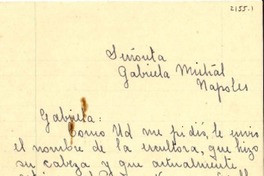 2155.1
Señorita
Gabriela Mistral
Napoles
Gabriela:
Como Ud me pidió, le envio
el nombre de la escultora, que hizo
su cabeza y que actualmente